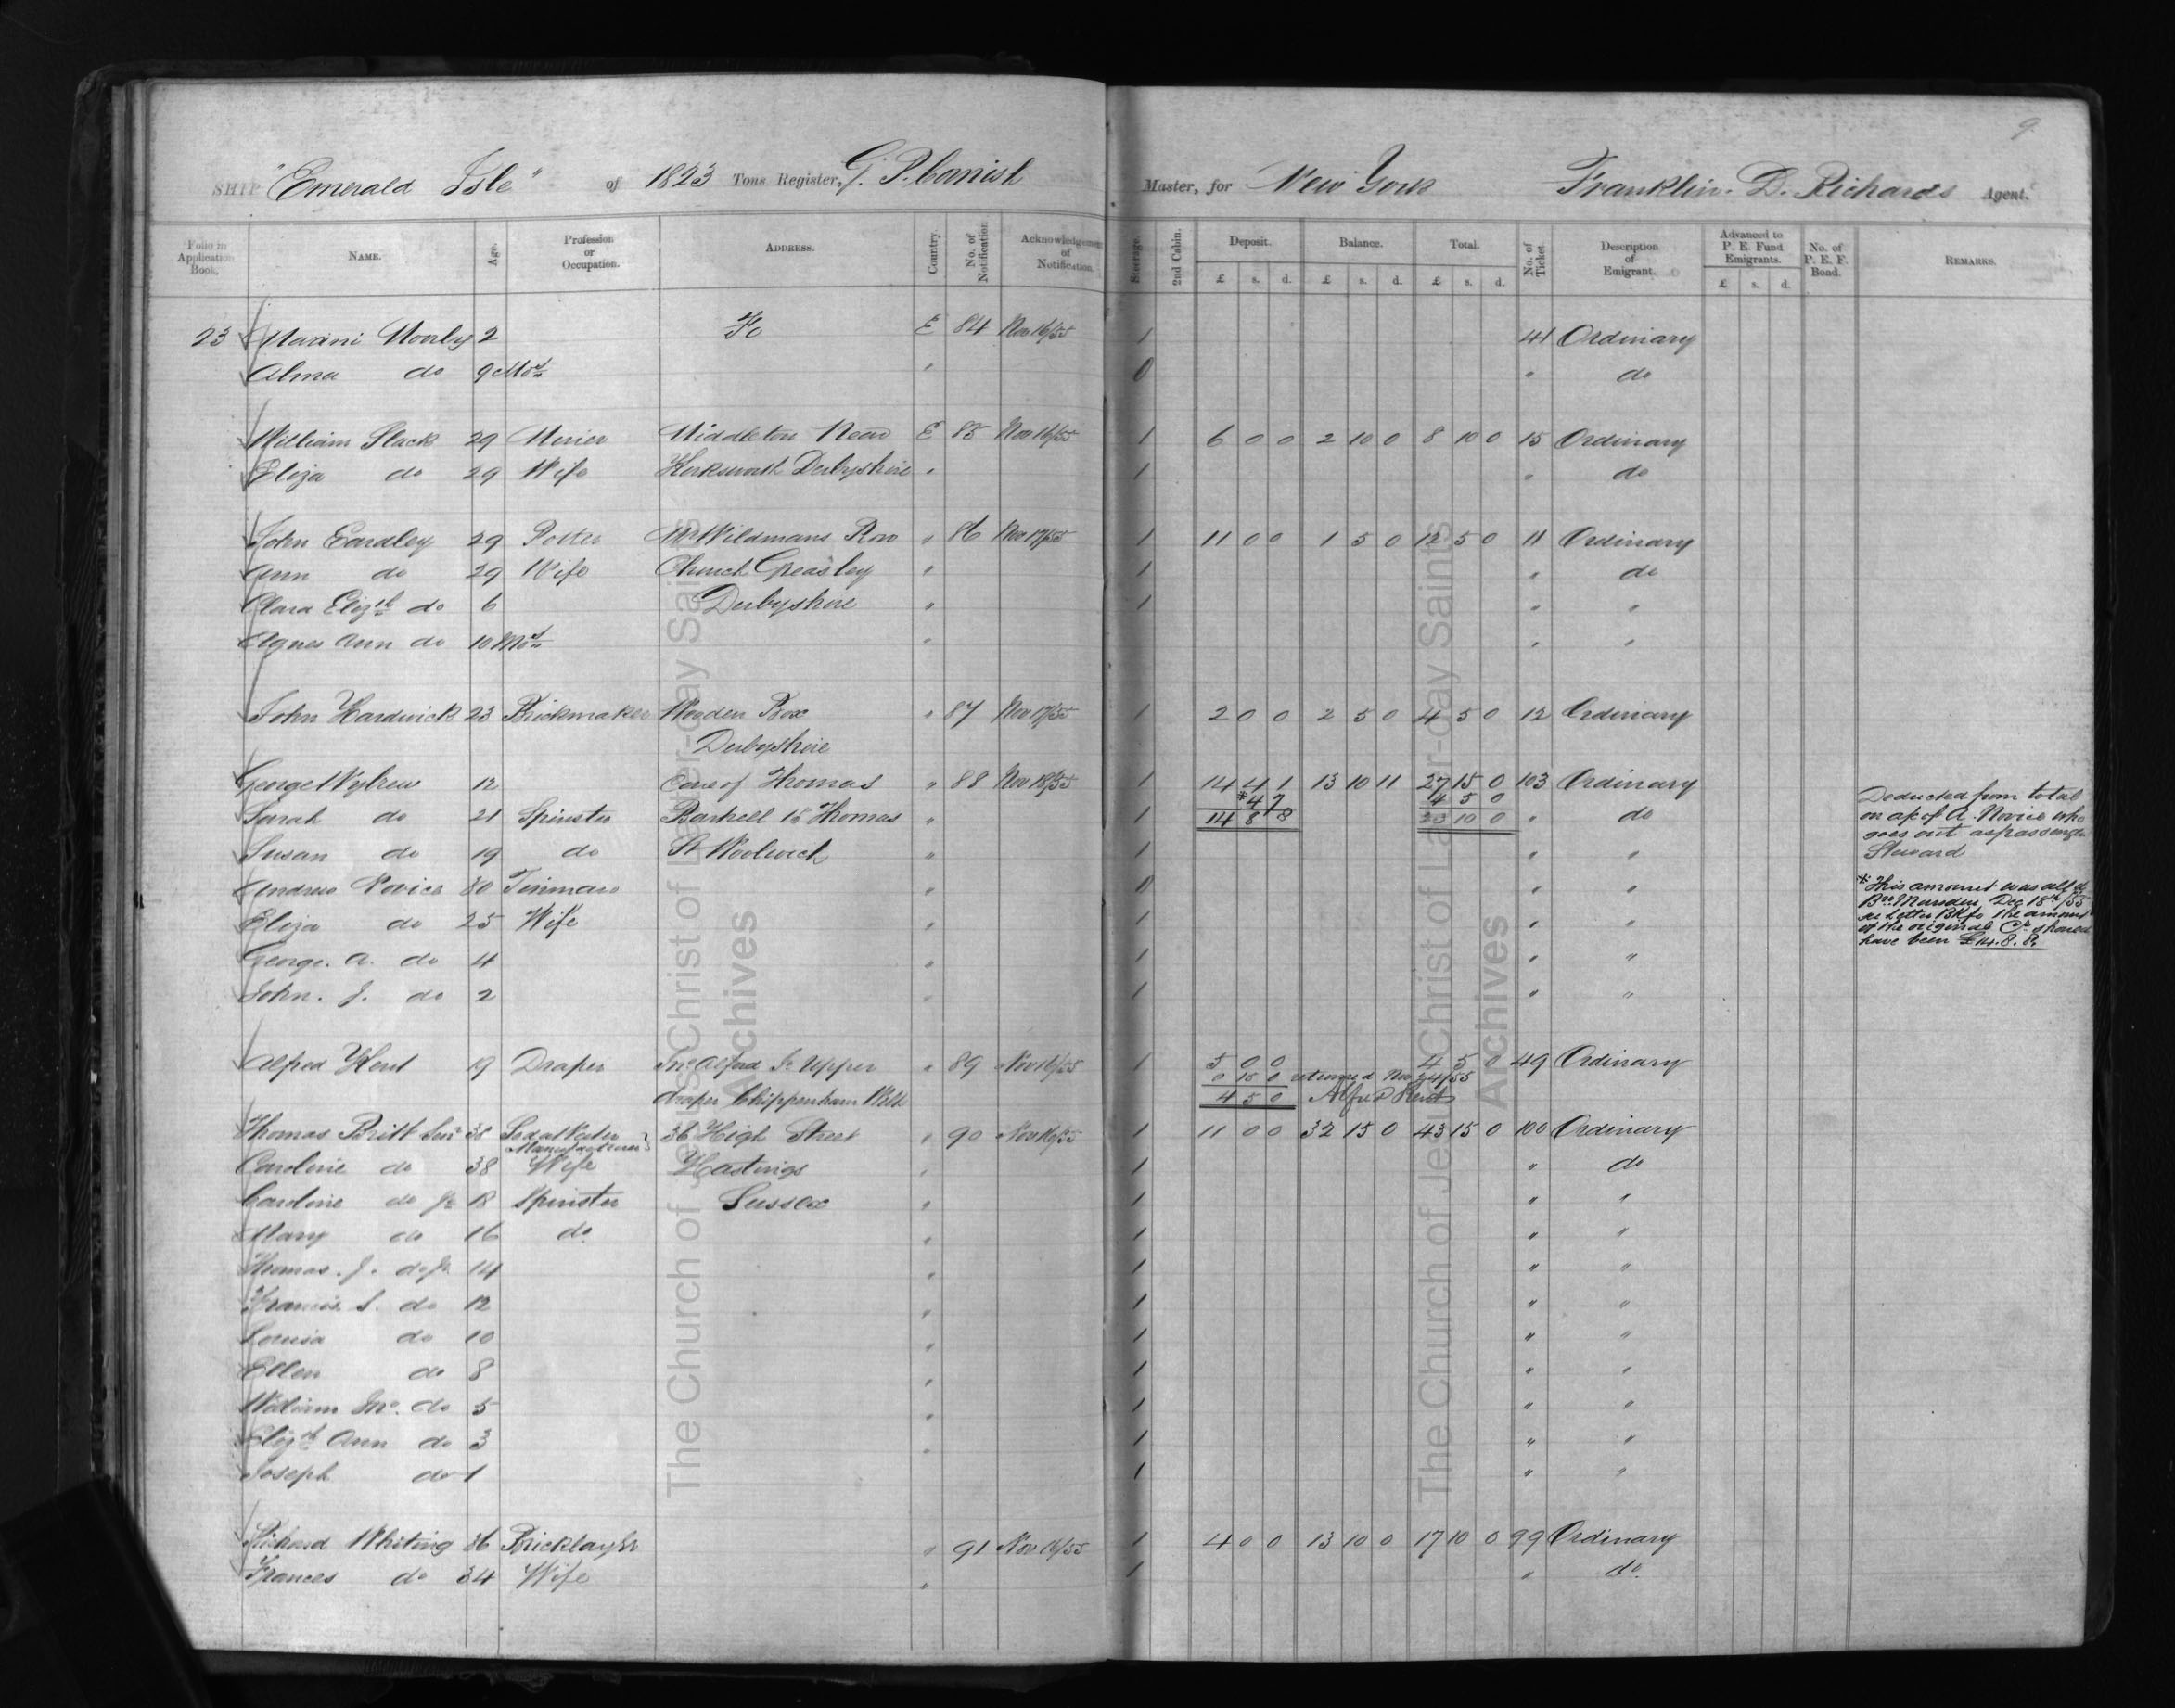 9
SHIP "Emerald Isle" of 1823 Tons Register, G. P. Cornish Master, for New York Franklin. D. Richards Agent.
Folio in Application Book. NAME. Age. Profession or Occupation. ADDRESS. Country. No. of Notification Acknowledgement of Notification. Steerage. 2nd Cabin. Deposit. Balance. Total. No. of Ticket. Description of Emigrant. Advanced to P. E. Fund Emigrants. No. of P. E. F. Bond. REMARKS.
£ s. d. £ s. d. £ s. d. £ s. d.
23 Moroni 2 Fo E 84 Nov 16/55 1 41 Ordinary
Alma do 9 Mos " 0 " do
William Slack 29 Miner Middleton Near E 85 Nov 16/55 1 6 0 0 2 10 0 8 10 0 15 Ordinary
Eliza do 29 Wife Derbyshire " 1 " do
John Eardley 29 Potter Mr Wildmans Row " 86 Nov 17/55 1 11 0 0 1 5 0 12 5 0 11 Ordinary
Ann do 29 Wife Church Greasley " 1 " do
Clara Elizth do 6 Derbyshire " 1 " "
Agnes Ann do 10 Mos " " "
John Hardwick 23 Brickmaker Wooden Box " 87 Nov 17/55 1 2 0 0 2 5 0 4 5 0 12 Ordinary
Derbyshire
George 12 Care of Thomas " 88 Nov 18/55 1 14 4 1 13 10 11 27 15 0 103 Ordinary
* 4 7 4 5 0
Sarah do 21 Spinster 15 Thomas " 1 14 8 8 23 10 0 " do
Susan do 19 do St Woolwich " 1 " "
Andrew Novice 30 Tinman " 0 " "
Eliza do 25 Wife " 1 " "
George. A. do 4 " 1 " "
John. J. do 2 " 1 " "
Deducted from total
on a/c of A. Novice who
goes out as passenger
Steward
* This amount was all d
Bro Marsden Dec 18th/55
see Letter BK fo the amount
of the original Ct should
have been £14. 8. 8.
Alfred Kent 19 Draper Upper " 89 Nov 16/55 1 5 0 0 4 5 0 49 Ordinary
0 15 0 returned Nov 24/55
draper Chippenham Wilts 4 5 0 Alfred Kent
Thomas Britt Senr 38 36 High Street " 90 Nov 16/55 1 11 0 0 32 15 0 43 15 0 100 Ordinary
Manufacturer
Caroline do 38 Wife Hastings " 1 " do
Caroline do Jr 18 Spinster Sussex " 1 " "
Mary do 16 do " 1 " "
Thomas. J. do Jr 14 " 1 " "
Francis S. do 12 " 1 " "
Louisa do 10 " 1 " "
Ellen do 8 " 1 " "
William do 5 " 1 " "
Elizth Ann do 3 " 1 " "
Joseph do 1 1 " "
Richard Whiting 36 Bricklayer " 91 Nov 16/55 1 4 0 0 13 10 0 17 10 0 99 Ordinary
Frances do 34 Wife " 1 " do
The Church of Jesus Christ of Latter-day Saints
Archives
The Church of Jesus Christ of Latter-day Saints
Archives